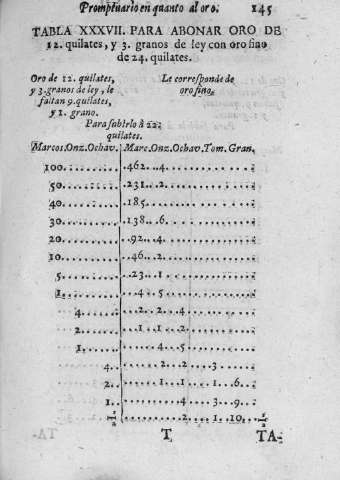 Promptuario en quanto al oro. 145
TABLA XXXVII. PARA ABONAR ORO DE
12. quilates, y 3. granos de ley con oro fino
de 24. quilates.
Oro de 12. quilates,
y 3. granos de ley, le
faltan 9. quilates,
y 1. grano.
Le corresponde de
oro fino.
Para subirlo à 22:
quilates.
Marcos. Onz. Ochav. Marc. Onz. Ochav. Tom. Gran.
100. 462 4
50. 231 2
40. 185
30. 138 6
20. 92 4
10. 46 2
5. 23 1
1. 4 5
4. 2 2 4
2. 1 1 2
1. 4 5
4. 2 2 3
2. 1 1 1 6
1. 4 3 9
1/2 2 1 10 1/2
T TA-